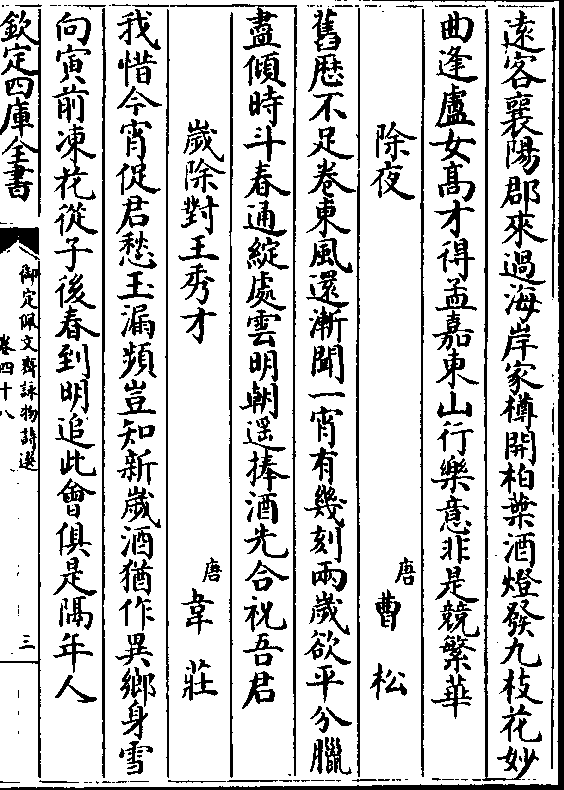 遠客襄陽郡來過海岸家樽開柏葉酒燈發九枝花妙
曲逢盧女髙才得孟嘉東山行樂意非是競繁華
除夜 唐 曹松
舊厯不足卷東風還漸聞一宵有幾刻兩嵗欲平分臘
盡傾時斗春通綻處雲明朝遥捧酒先合祝吾君
嵗除對王秀才 唐 韋莊
我惜今宵促君愁玉漏頻豈知新嵗酒猶作異鄉身雪
向寅前凍花從子後春到明追此㑹俱是隔年人
欽定四庫全書
御定佩文齋詠物詩選
卷四十八
三